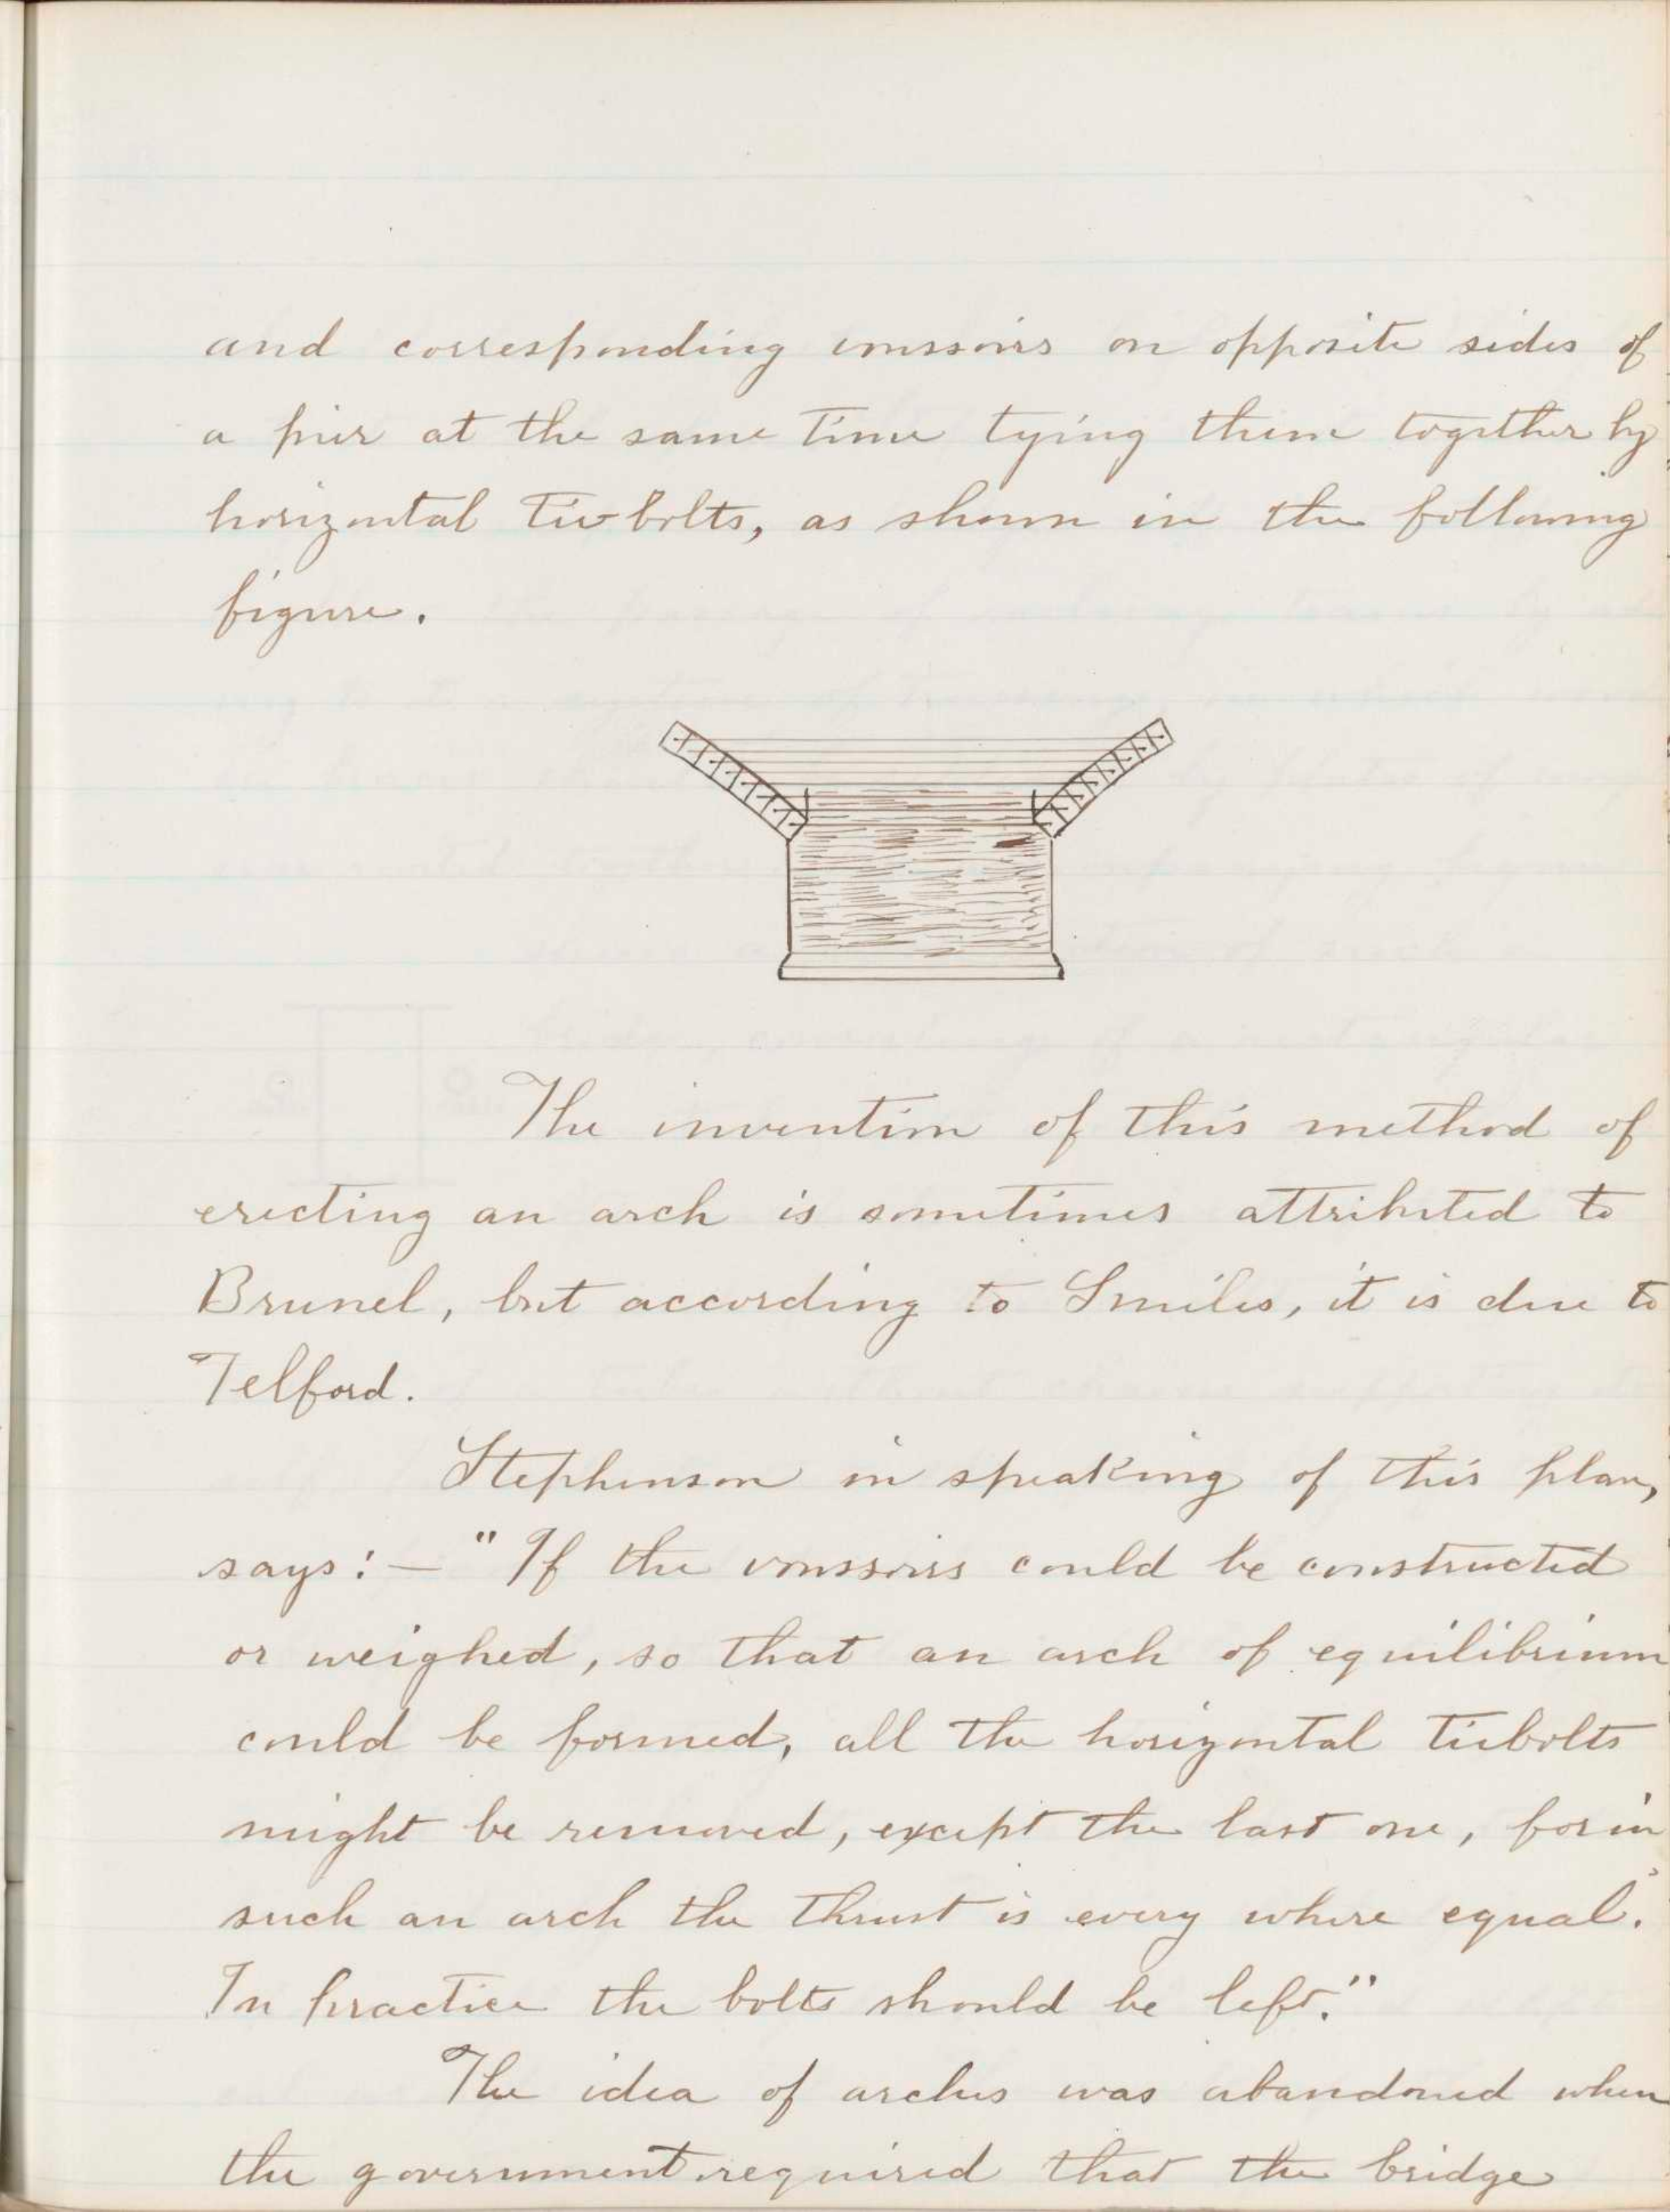 and corresponding voussoirs on opposite sides of
a pier at the same time tying them together by
horizontal tie bolts, as shown in the following
figure.
The invention of this method of
erecting an arch is sometimes attributed to
Brunel, but according to Smiles, it is due to
Telford.
Stephenson in speaking of this plan,
says:— "If the voussoirs could be constructed
or weighed, so that an arch of equilibrium
could be formed, all the horizontal tiebolts
might be removed, except the last one, for in
such an arch the thrust is every where equal.
In practice the bolts should be left."
The idea of arches was abandoned when
the government required that the bridge